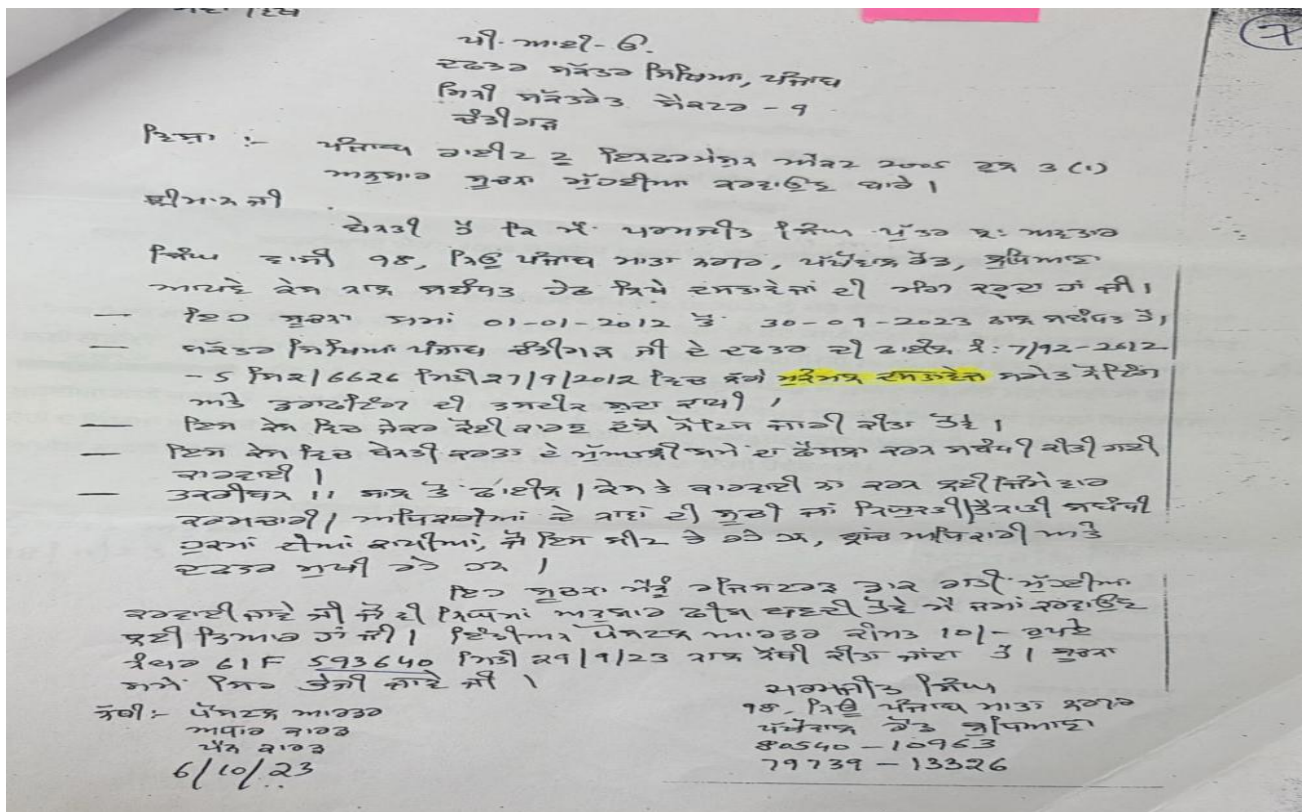 7
ਪੀ. ਆਈ- ਓ.
ਦਫਤਰ ਸਕੱਤਰ ਸਿਖਿਆ, ਪੰਜਾਬ
ਮਿਨੀ ਸਕੱਤਰੇਤ ਸੈਕਟਰ - 9
ਚੰਡੀਗੜ
ਵਿਸ਼ਾ :- ਪੰਜਾਬ ਰਾਈਟ ਟੂ ਇਨਫਰਮੇਸ਼ਨ ਐਕਟ 2005 ਦਫਾ 3 (1)
ਅਨੁਸਾਰ ਸੂਚਨਾ ਮੁੱਹਈਆ ਕਰਵਾਉਣ ਬਾਰੇ ।
ਸ਼੍ਰੀਮਾਨ ਜੀ
ਬੇਨਤੀ ਹੈ ਕਿ ਮੈਂ ਪਰਮਜੀਤ ਸਿੰਘ ਪੁੱਤਰ ਸ: ਅਵਤਾਰ
ਸਿੰਘ ਵਾਸੀ 98, ਨਿਊ ਪੰਜਾਬ ਮਾਤਾ ਨਗਰ, ਪੱਖੋਵਾਲ ਰੋਡ, ਲੁਧਿਆਣਾ
ਆਪਣੇ ਕੇਸ ਨਾਲ ਸਬੰਧਤ ਹੇਠ ਲਿਖੇ ਦਸਤਾਵੇਜਾਂ ਦੀ ਮੰਗ ਕਰਦਾ ਹਾਂ ਜੀ ।
— ਇਹ ਸੂਚਨਾ ਸਮਾਂ 01-01-2012 ਤੋਂ 30-09-2023 ਨਾਲ ਸਬੰਧਤ ਹੈ ।
— ਸਕੱਤਰ ਸਿਖਿਆ ਪੰਜਾਬ ਚੰਡੀਗੜ ਜੀ ਦੇ ਦਫਤਰ ਦੀ ਫਾਈਲ ਨੰ: 7/92-2012
- 5 ਸਿ2/6626 ਮਿਤੀ 27/9/2012 ਵਿਚ ਲੱਗੇ ਮੁਕੰਮਲ ਦਸਤਾਵੇਜ ਸਮੇਤ ਨੋਟਿੰਗ
ਅਤੇ ਡਰਾਫਟਿੰਗ ਦੀ ਤਸਦੀਕ ਸ਼ੁਦਾ ਕਾਪੀ ।
— ਇਸ ਕੇਸ ਵਿਚ ਜੇਕਰ ਕੋਈ ਕਾਰਣ ਦੱਸੋ ਨੋਟਿਸ ਜਾਰੀ ਕੀਤਾ ਹੋਵੇ ।
— ਇਸ ਕੇਸ ਵਿਚ ਬੇਨਤੀ ਕਰਤਾ ਦੇ ਮੁੱਅਤਲੀ ਸਮੇਂ ਦਾ ਫੈਸਲਾ ਕਰਨ ਸਬੰਧੀ ਕੀਤੀ ਗਈ
ਕਾਰਵਾਈ ।
— ਤਕਰੀਬਨ 11 ਸਾਲ ਤੋਂ ਫਾਈਲ / ਕੇਸ ਤੇ ਕਾਰਵਾਈ ਨਾ ਕਰਨ ਲਈ ਜਿੰਮੇਵਾਰ
ਕਰਮਚਾਰੀ / ਅਧਿਕਾਰੀਆਂ ਦੇ ਨਾਵਾਂ ਦੀ ਸੂਚੀ ਜਾਂ ਨਿਯੁਕਤੀ/ਤੈਨਾਤੀ ਸਬੰਧੀ
ਹੁਕਮਾਂ ਦੀਆਂ ਕਾਪੀਆਂ, ਜੋ ਇਸ ਸੀਟ ਤੇ ਰਹੇ ਹਨ, ਬ੍ਰਾਂਚ ਅਧਿਕਾਰੀ ਅਤੇ
ਦਫਤਰ ਮੁਖੀ ਰਹੇ ਹਨ ।
ਇਹ ਸੂਚਨਾ ਮੈਨੂੰ ਰਜਿਸਟਰਡ ਡਾਕ ਰਾਹੀਂ ਮੁੱਹਈਆ
ਕਰਵਾਈ ਜਾਵੇ ਜੀ ਜੋ ਵੀ ਨਿਯਮਾਂ ਅਨੁਸਾਰ ਫੀਸ ਬਣਦੀ ਹੋਵੇ ਮੈਂ ਜਮਾਂ ਕਰਵਾਉਣ
ਲਈ ਤਿਆਰ ਹਾਂ ਜੀ । ਇੰਡੀਅਨ ਪੋਸਟਲ ਆਰਡਰ ਕੀਮਤ 10/- ਰੁਪਏ
ਨੰਬਰ 61F 593640 ਮਿਤੀ 29/9/23 ਨਾਲ ਨੱਥੀ ਕੀਤਾ ਜਾਂਦਾ ਹੈ । ਸੂਚਨਾ
ਸਮੇਂ ਸਿਰ ਭੇਜੀ ਜਾਵੇ ਜੀ ।
ਪਰਮਜੀਤ ਸਿੰਘ
98, ਨਿਊ ਪੰਜਾਬ ਮਾਤਾ ਨਗਰ
ਪੱਖੋਵਾਲ ਰੋਡ ਲੁਧਿਆਣਾ
80540-10963
79739-13326
ਨੱਥੀ:- ਪੋਸਟਲ ਆਰਡਰ
ਅਧਾਰ ਕਾਰਡ
ਪੈਨ ਕਾਰਡ
6/10/23